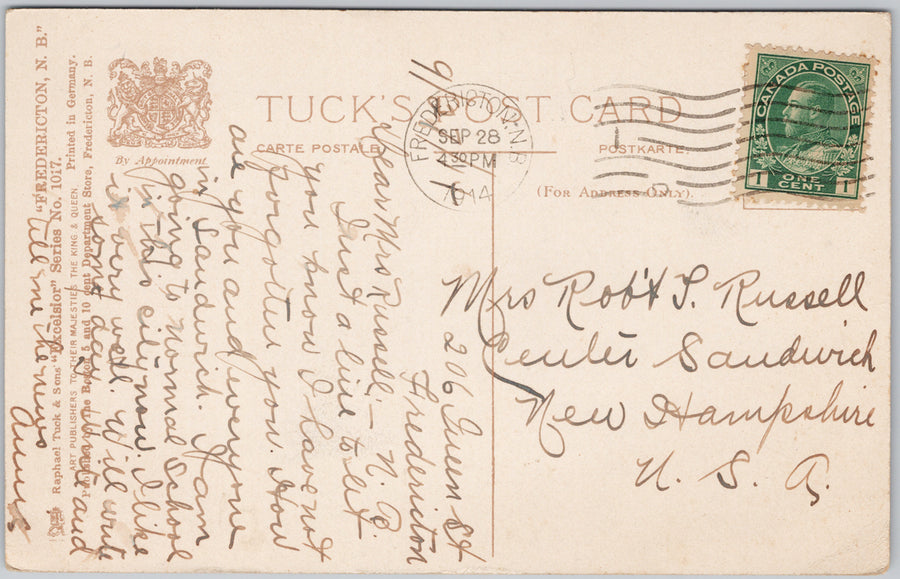 "FREDERICTON, N. B."
Raphael Tuck & Sons' "Excelsior" Series No. 1017.
ART PUBLISHERS TO THEIR MAJESTIES THE KING & QUEEN. Printed in Germany.
Published by The Boston 5 and 10 cent Department Store, Fredericton, N. B.
By Appointment.
TUCK'S POST CARD
CARTE POSTALE
POSTKARTE
(FOR ADDRESS ONLY).
FREDERICTON. N.B.
SEP 28
4 30 PM
1914
CANADA POSTAGE
1 ONE CENT 1
Mrs Rob't S. Russell
Center Sandwich
New Hampshire
U. S. A.
206 Queen St
Fredericton
N. B.
Dear Mrs Russell, —
Just a line to let
you know I havent
forgotten you. How
are you and everyone
in Sandwich. I am
going to Normal School
in this city now. I like
it very well. Will write
some day
and
tell me the news